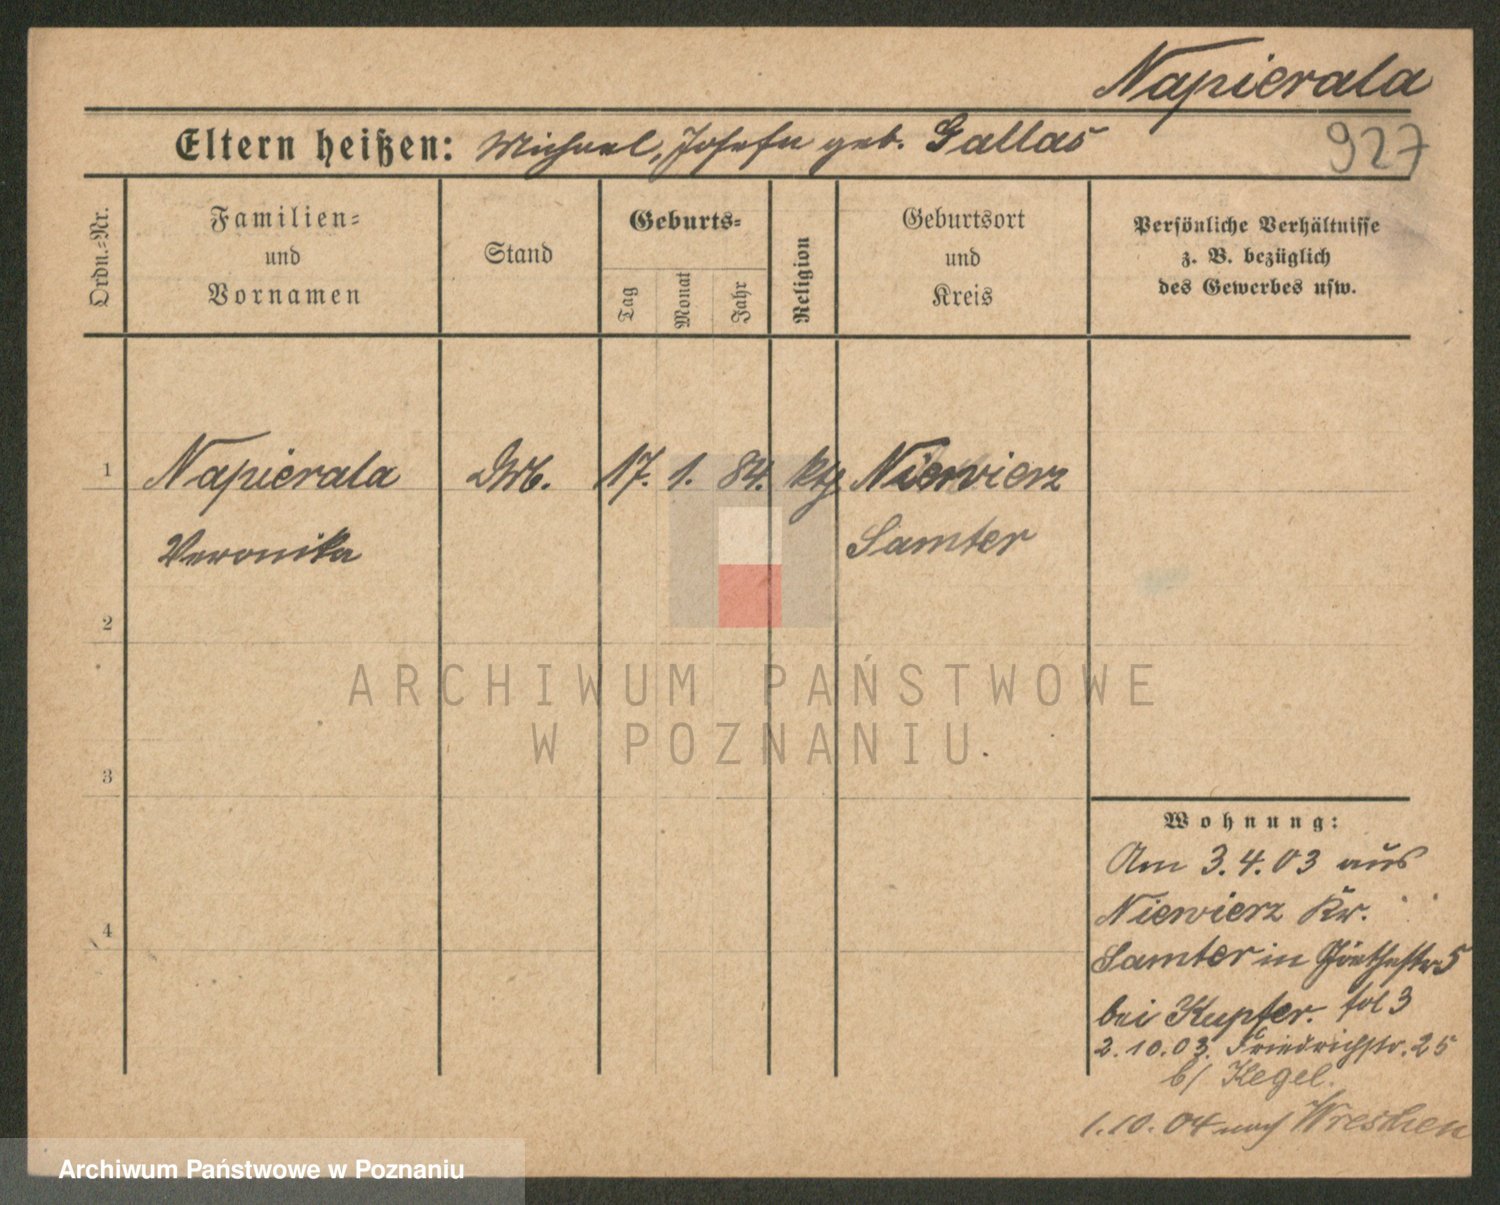 Napierala
Eltern heißen: Michael, Josefa geb. Gallas
927
Ordn.=Nr.
Familien=
und
Vornamen
Stand
Geburts=
Tag
Monat
Jahr
Religion
Geburtsort
und
Kreis
Persönliche Verhältnisse
z. B. bezüglich
des Gewerbes usw.
1 Napierala 17. 1. 84. kth Niewierz
Veronika Samter
2
3
4
Wohnung:
Am 3.4.03 aus
Niewierz Kr.
Samter in Göthestr 5
bei Kupfer. fol 3
2.10.03. Friedrichstr. 25
b/ Kegel.
1.10.04 nach Wreschen
ARCHIWUM PAŃSTWOWE
W POZNANIU
Archiwum Państwowe w Poznaniu